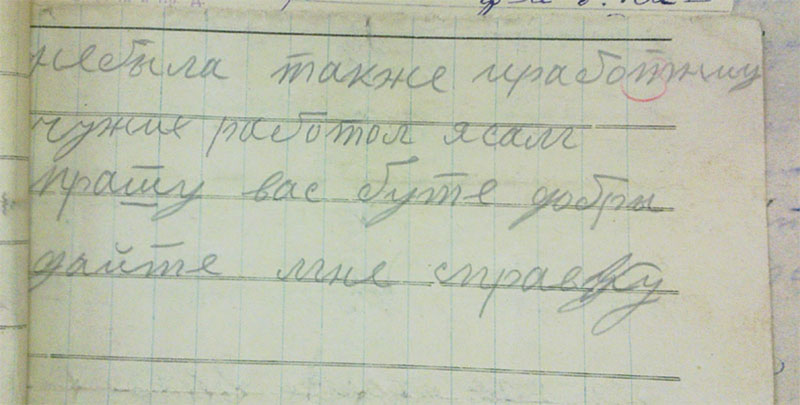 небыла также иработниу
чужих работол ясалг
прашу вас буте добры
дайте мне справку